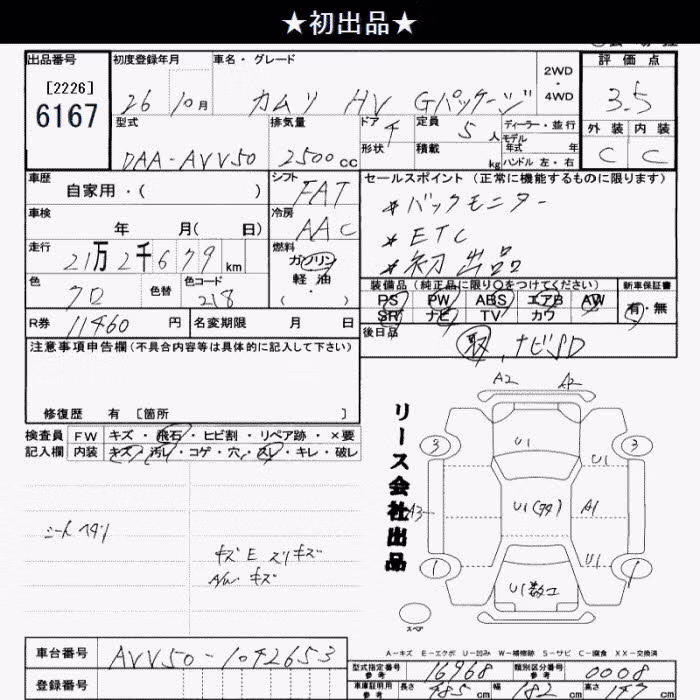 ★初出品★
出品番号 初度登録年月 車名・グレード 2WD 4WD 評価点
[2226]
6167
26 10月 カムリ HV Gパッケージ 3.5
型式 排気量 ドア 4 定員 5人 ディーラー・並行 外装 内装
形状 積載 kg モデル年式 年 ハンドル 左・右
DAA-AVV50 2500cc C C
車歴 シフト セールスポイント (正常に機能するものに限ります)
自家用・( ) FAT
*バックモニター
車検 冷房
年 月( 日) AAC
*ETC
走行 燃料
21万2千679km ガソリン
*初出品
軽油
( ・ )
色 色替 色コード
クロ 218
装備品 (純正品に限り○をつけてください) 新車保証書
PS PW ABS エアB AW 有・無
SR ナビ TV カワ
R券 11460円 名変期限 月 日
後日品
取, ナビSD
注意事項申告欄(不具合内容等は具体的に記入して下さい)
修復歴 有 [箇所 ]
検査員 FW キズ・飛石・ヒビ割・リペア跡・×要
記入欄 内装 キズ・汚レ・コゲ・穴・スレ・キレ・破レ
シートヘタリ
キズE スリキズ
A/W キズ
リース会社出品
A2 A2
3 U1 3
U1
A3 U1 A1
U1
1 1
U1
スペア
A-キズ E-エクボ U-凹み W-補修跡 S-サビ C-腐食 XX-交換済
車台番号 AVV50-1042653
登録番号
型式指定番号 参考 16968 類別区分番号 参考 0008
車庫証明用 参考 長さ 485cm 幅 182cm 高さ cm